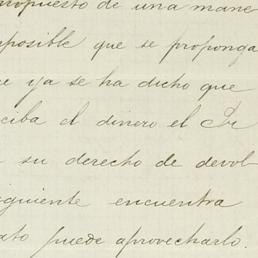 ropuesto de una mane
mposible que se proponga
ce ya se ha dicho que
ciba el dinero el Pr
su derecho de devol
iguiente encuentra
ato puede aprovecharlo.